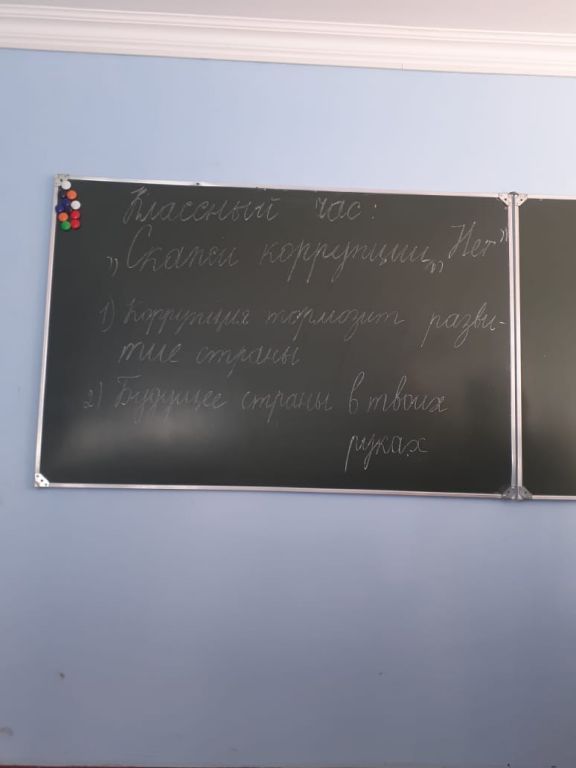 Классный час:
„Скажи коррупции „Нет"
1) Коррупция тормозит разви-
тие страны
2) Будущее страны в твоих
руках